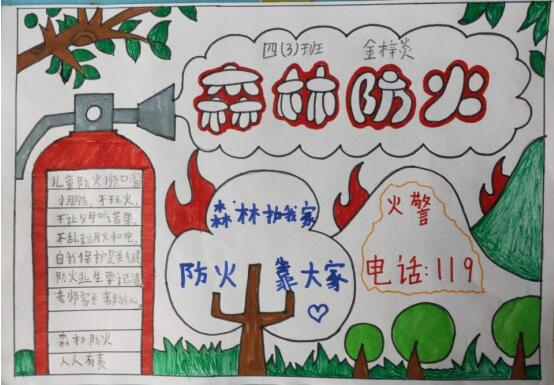 四(3)班 金梓炎
森林防火
儿童防火顺口溜
小朋友，不玩火，
不让父母吃苦果。
不乱动用火和电，
自我保护是关键
防火卫生要记清
老师家长都放心。
森林防火
人人有责
森林护我家
防火 靠大家
火警
电话:119